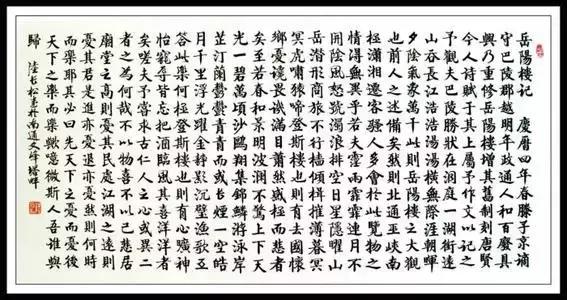 岳陽樓記 慶曆四年春滕子京謫
守巴陵郡越明年政通人和百廢具
興乃重修岳陽樓增其舊制刻唐賢
今人詩賦于其上屬予作文以記之
予觀夫巴陵勝狀在洞庭一湖銜遠
山吞長江浩浩湯湯橫無際涯朝暉
夕陰氣象萬千此則岳陽樓之大觀
也前人之述備矣然則北通巫峽南
極瀟湘遷客騷人多會於此覽物之
情得無異乎若夫霪雨霏霏連月不
開陰風怒號濁浪排空日星隱曜山
岳潛形商旅不行檣傾楫摧薄暮冥
冥虎嘯猿啼登斯樓也則有去國懷
鄉憂讒畏譏滿目蕭然感極而悲者
矣至若春和景明波瀾不驚上下天
光一碧萬頃沙鷗翔集錦鱗游泳岸
芷汀蘭鬱鬱青青而或長煙一空皓
月千里浮光躍金靜影沉璧漁歌互
答此樂何極登斯樓也則有心曠神
怡寵辱皆忘把酒臨風其喜洋洋者
矣嗟夫予嘗求古仁人之心或異二
者之為何哉不以物喜不以己悲居
廟堂之高則憂其民處江湖之遠則
憂其君是進亦憂退亦憂然則何時
而樂耶其必曰先天下之憂而憂後
天下之樂而樂歟噫微斯人吾誰與
歸 陸長松書於南通文峰塔畔